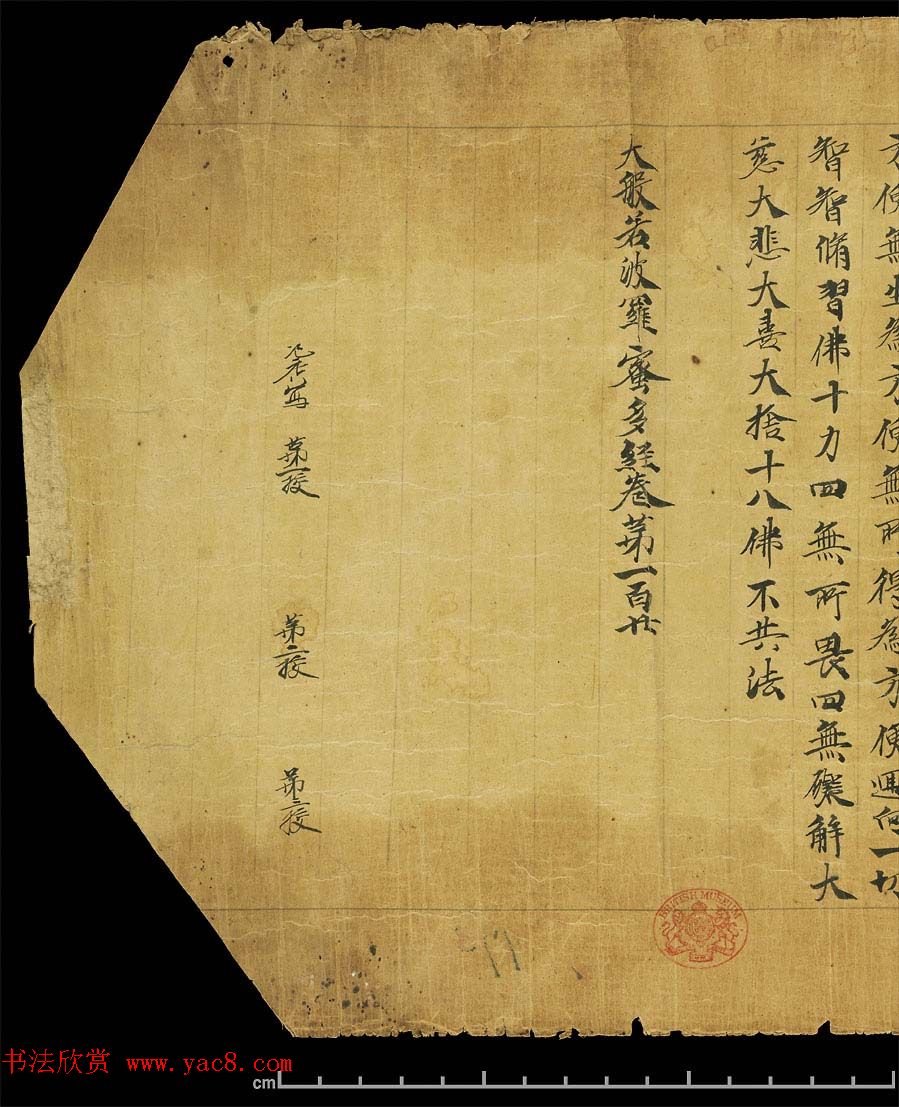 方便無生為方便無所得為方便迴向一切
智智脩習佛十力四無所畏四無礙解大
慈大悲大喜大捨十八佛不共法
大般若波羅蜜多經卷第一百廿
寫 第一校 第二校 第三校
BRITISH MUSEUM
书法欣赏 www.yac8.com
cm